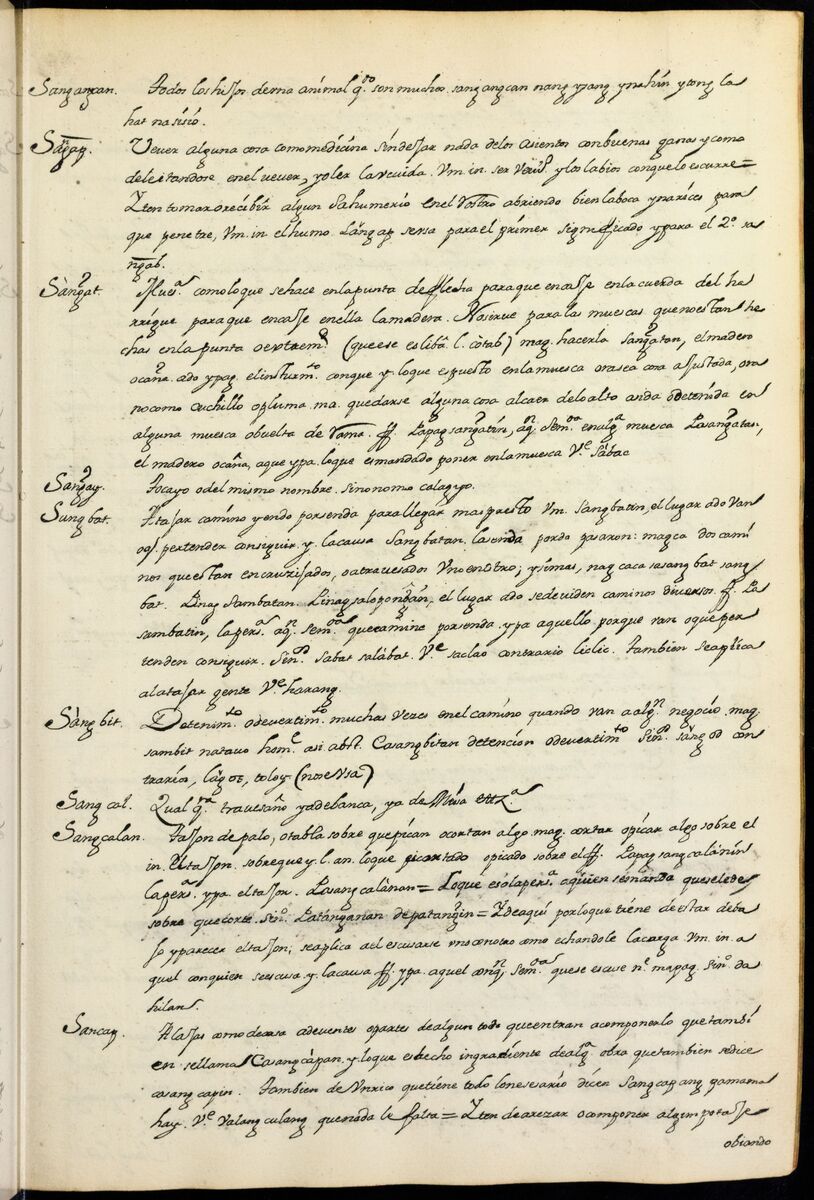 Sangangan. todos los hijos de una animal q.e son muchos. sangangcan nang ysang ynahin ytong la
hat na sisiò.
Sangap. Vever alguna cosa como medicina sin dejar nada de los asientos con buenas ganas y como
deleitandose en el vever, y oler la vevida. Vm. in. ser y los labios con que lo escurre=
Yten tomar o recibir algun sahumerio en el Rostro abriendo bien la boca y narices para
que penetre, Vm. in el humo. Langap sirva para el primer significado y para el 2.o sa
ngab.
Sàngat. como lo que se hace en la punta de flecha para que encaje en la cuerda del ha
rrigue para que encaje en ella la madera. No sirue para las muescas que no estan he
chas en la punta o extrem.d (que ese es libâ l. cotab) mag. hacerla sangatan, el madero
o caña. ado y pag. el insturm.to con que y. lo que es puesto en la muesca ora sea cosa ajustada, ora
no como cuchillo o pluma. ma. quedarse alguna cosa al caer de lo alto asida o detenida en
alguna muesca o buelta de Rama. ff. Papag sangatin, aq.n sem.da en alg.a muesca Pasangatan,
el madero o caña, a que ypa. lo que es mandado poner en la muesca V.e Sàbac
Sangay. tocayo o del mismo nombre. sinonomo calagyo.
Sangbat. Atajar camino yendo por senda para llegar mas presto Vm. Sangbatin, el lugar ado Van
o q.e pertenden conseguir. y. la causa Sangbatan. la senda por do pasaron: magca dos cami
nos que estan encruzijados, o atravesados Vno en otro; y si mas, nag caca sasangbat sang
bat. Pinag sambatan. Pinagsalopongan, el lugar ado se deviden caminos diversos. ff. Pa
sambatin, la pers.a aq.n sem.da que camine por senda. ypa aquello porque van o que per
tenden conseguir. Sin.o sabat salàbat. V.e saclao contrario liclic. tambien se aplica
a atajar gente V.e harang.
Sàngbit. Detenim.to o devertim.to muchas vezes en el camino quando van a alg.n negocio. mag.
sambit na tauo hom.e asi abst. Casangbitan detencion o devertim.to Sin.o sàngod con
trarios, làgos, toloy (no se Usa)
Sangcal. Qual q.a travesaño ya de banca, ya de Mesa ettz.a
Sangcalan. tajon de palo, o tabla sobre que pican o cortan algo mag. cortar o picar algo sobre el
in. El tajon. sobre que y. l. an. lo que picortado o picado sobre el. ff. Papag sangcalànin
la pers.a ypa. el tajon. Pasangcalànan = Lo que es o la pers.a a quien se manda que se le de
sobre que corte. Sin.o Patànganan de patangin = Y de aqui por lo que tiene de estar deba
jo y parecer el tajon, se aplica al escusarse vno con otro como echandole la carga Vm. in. a
quel con quien se escusa y. la causa ff. ypa. aquel con q.n sem.da que se escuse n.e mapag. Sin.o da
hilan.
Sancap. Alajas como de casa adereentes o partes de algun todo que entran a componerlo que tambi
en se llama Casangcàpan. y. lo que es hecho ingrediente de alg.a obra que tambien se dice
casangcapin. tambien de Vn rico que tiene todo lo nesesario dicen Sangcapang gamama
hay. V.e Valang culang que nada le falta = Yten de arezar o componer algun potaje
obiando